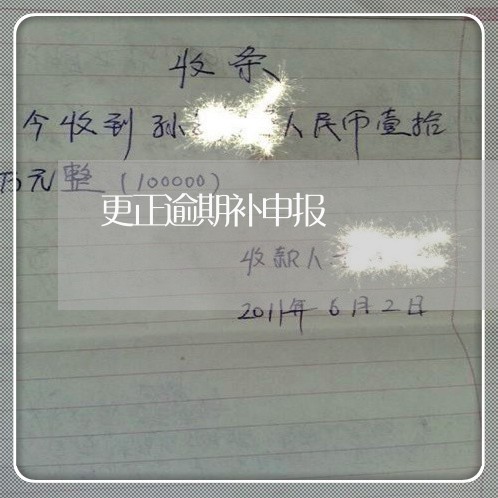 收条
今收到孙人民币壹拾
万元整(100000)
更正逾期补申报
收款人
2011年6月2日